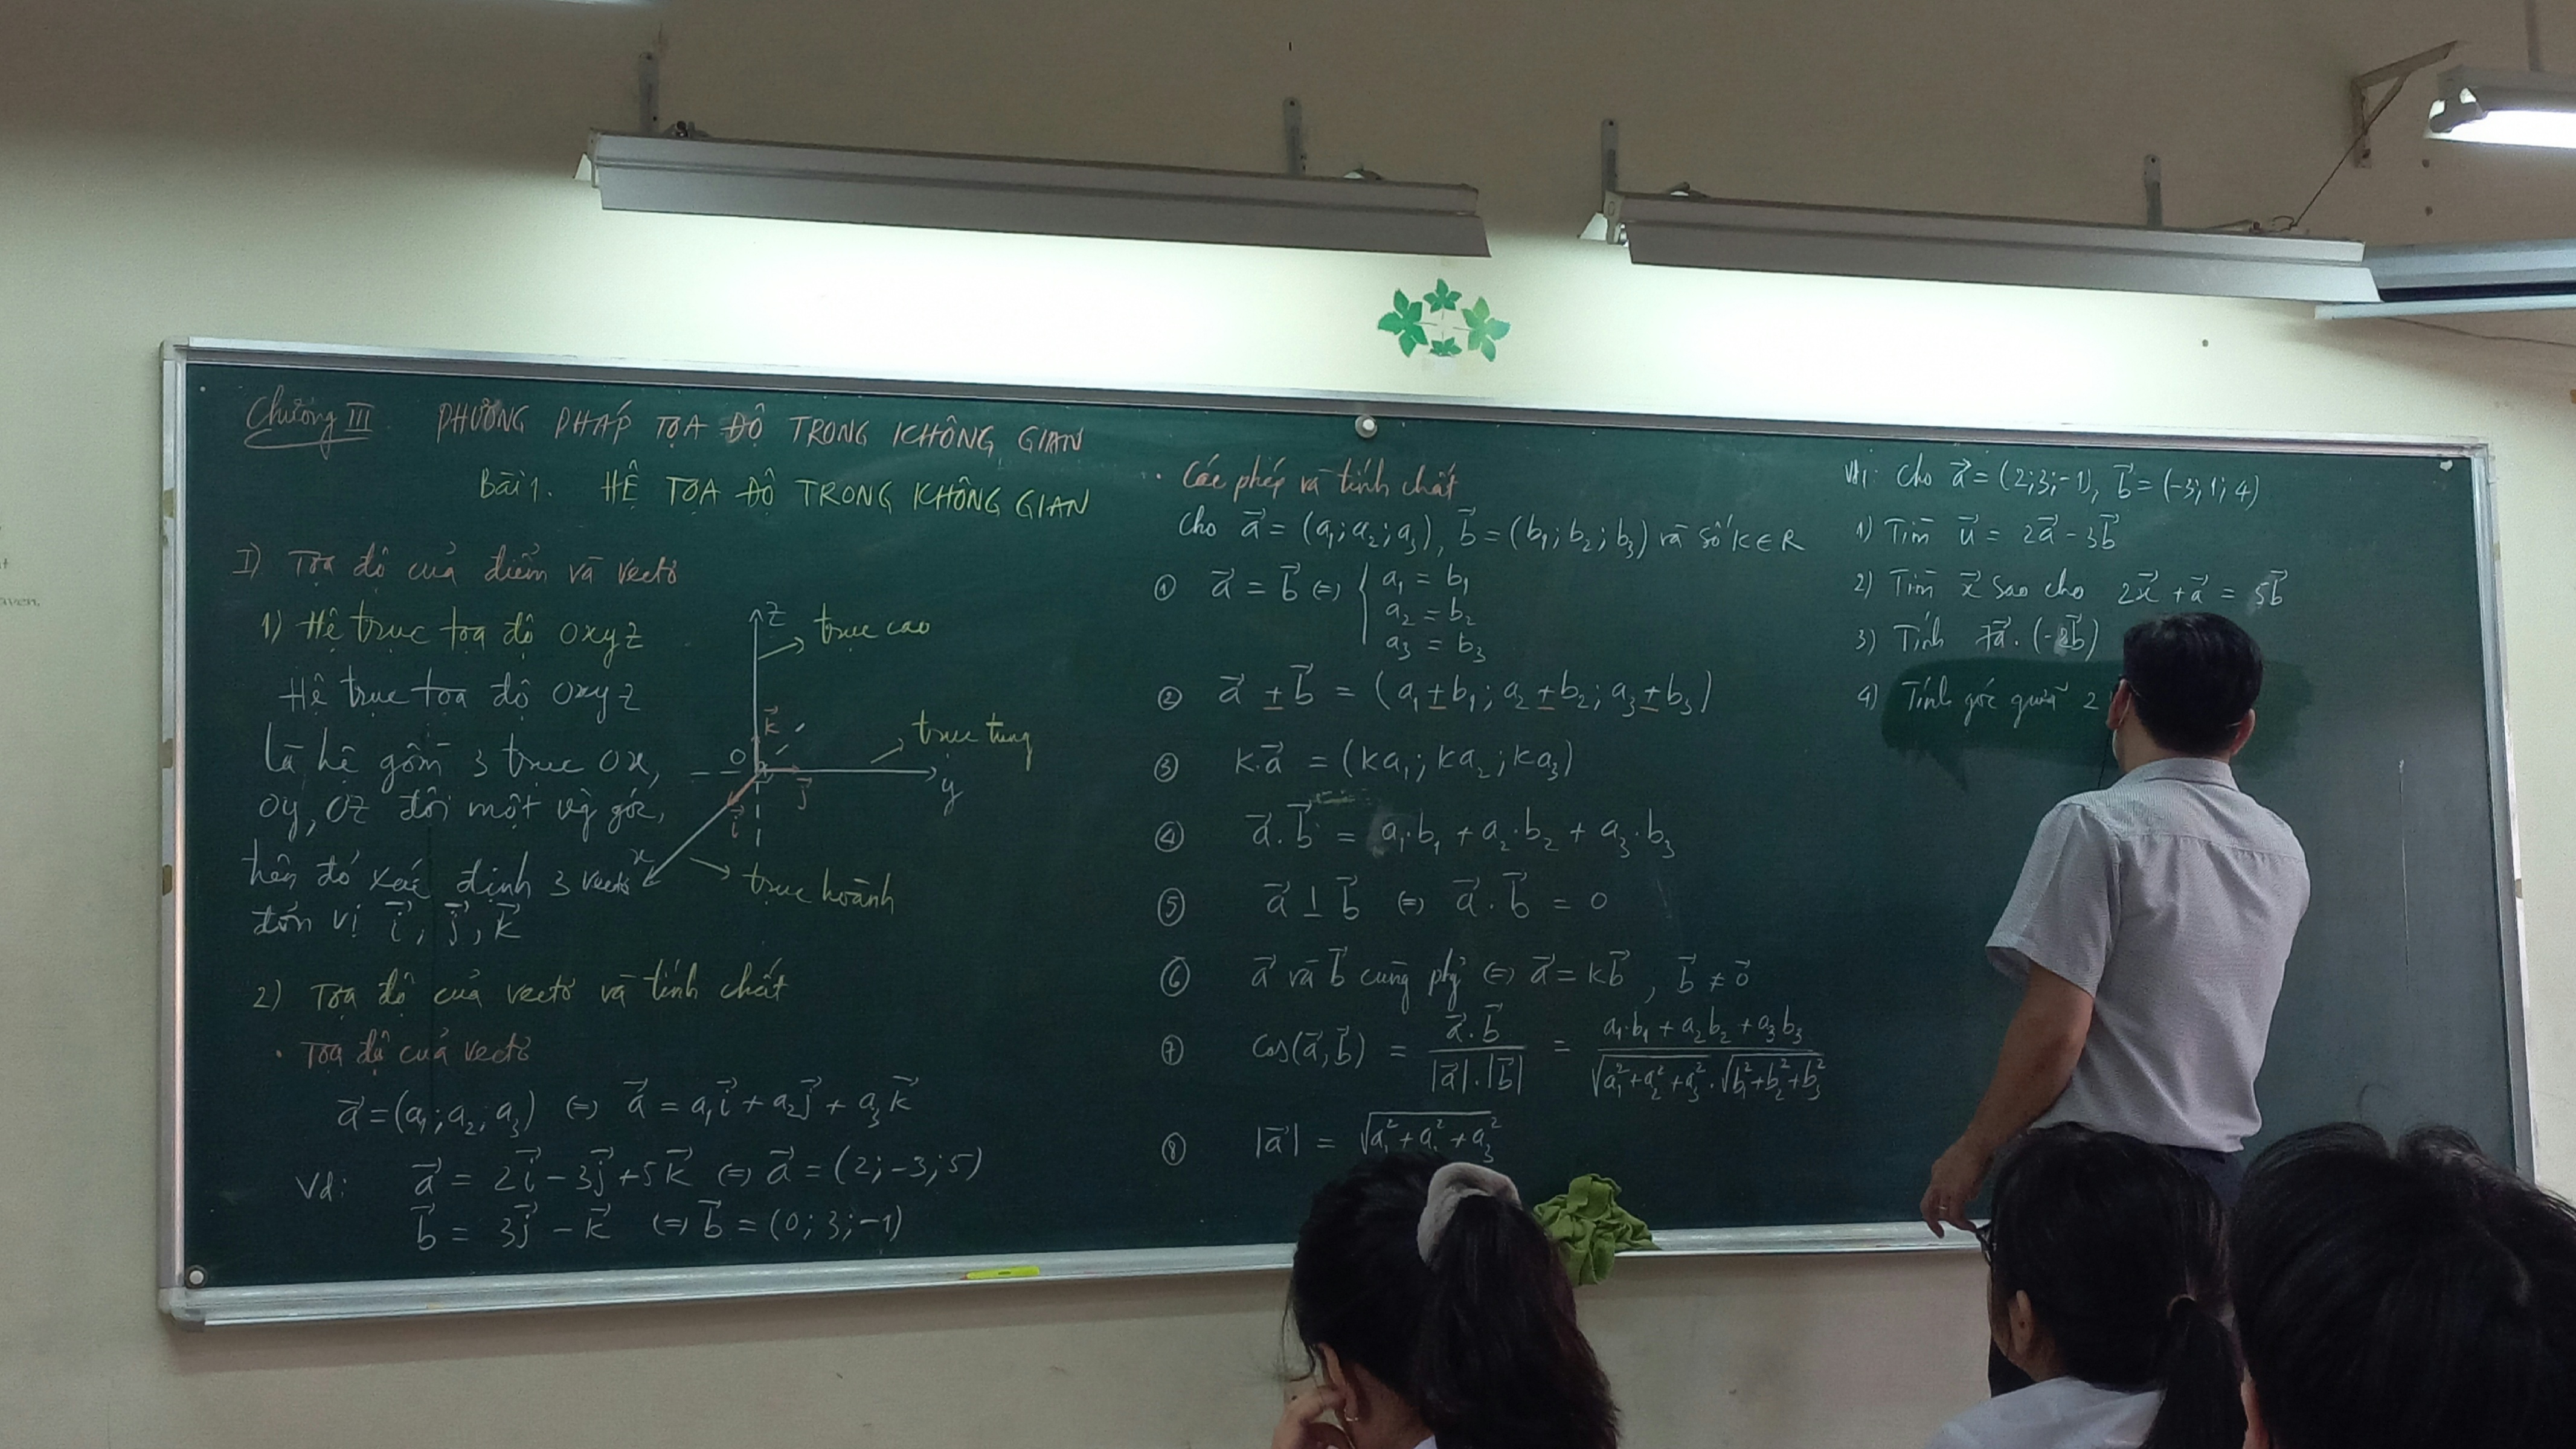 Chương III. PHƯƠNG PHÁP TỌA ĐỘ TRONG KHÔNG GIAN
Bài 1. HỆ TỌA ĐỘ TRONG KHÔNG GIAN
I) Tọa độ của điểm và vectơ
1) Hệ trục tọa độ Oxyz
Hệ trục tọa độ Oxyz
là hệ gồm 3 trục Ox,
Oy, Oz đôi một vg góc,
trên đó xác định 3 vectơ
đơn vị i⃗, j⃗, k⃗
z
trục cao
k⃗
trục tung
O
j⃗
y
i⃗
x
trục hoành
2) Tọa độ của vectơ và tính chất
• Tọa độ của vectơ
a⃗ = (a₁; a₂; a₃) ⇔ a⃗ = a₁i⃗ + a₂j⃗ + a₃k⃗
Vd: a⃗ = 2i⃗ - 3j⃗ + 5k⃗ ⇔ a⃗ = (2; -3; 5)
b⃗ = 3j⃗ - k⃗ ⇔ b⃗ = (0; 3; -1)
• Các phép và tính chất
Cho a⃗ = (a₁; a₂; a₃), b⃗ = (b₁; b₂; b₃) và số k ∈ R
① a⃗ = b⃗ ⇔ { a₁ = b₁
a₂ = b₂
a₃ = b₃
② a⃗ ± b⃗ = (a₁ ± b₁; a₂ ± b₂; a₃ ± b₃)
③ k.a⃗ = (ka₁; ka₂; ka₃)
④ a⃗.b⃗ = a₁.b₁ + a₂.b₂ + a₃.b₃
⑤ a⃗ ⊥ b⃗ ⇔ a⃗.b⃗ = 0
⑥ a⃗ và b⃗ cùng phg ⇔ a⃗ = kb⃗, b⃗ ≠ 0⃗
⑦ cos(a⃗, b⃗) = a⃗.b⃗ / |a⃗|.|b⃗| = a₁.b₁ + a₂b₂ + a₃b₃ / √a₁² + a₂² + a₃² . √b₁² + b₂² + b₃²
⑧ |a⃗| = √a₁² + a₂² + a₃²
Vd: Cho a⃗ = (2; 3; -1), b⃗ = (-3; 1; 4)
1) Tìm u⃗ = 2a⃗ - 3b⃗
2) Tìm x⃗ sao cho 2x⃗ + a⃗ = 5b⃗
3) Tính 7a⃗.(-2b⃗)
4) Tính góc giữa 2